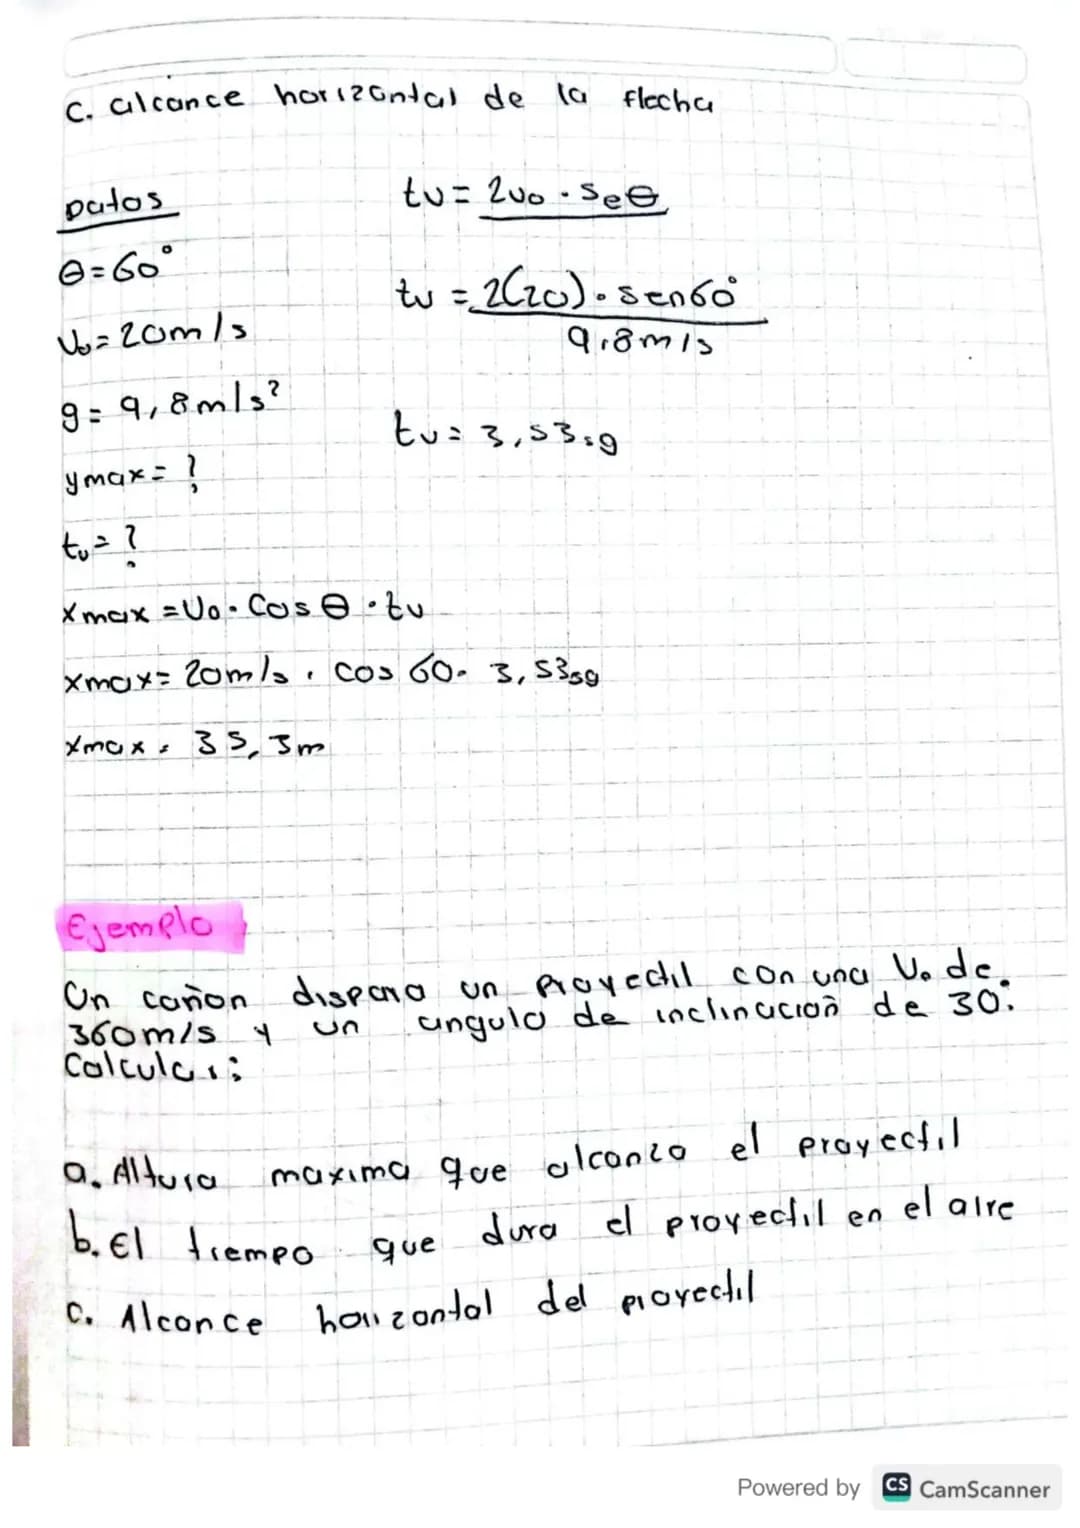 C. alcance horizontal de la flecha
Datos
tv = 2vo · Seθ
θ = 60°
tv = 2(20) · sen60°
9,8m/s
Vo = 20m/s
g = 9,8m/s²
tv = 3,53sg
ymax = ?
tv = ?
Xmax = Vo · Cos θ · tv
xmax = 20m/s . cos 60. 3,53sg
xmax = 35,3m
Ejemplo
Un cañon dispara un Proyectil con una Vo de
360m/s y un angulo de inclinacion de 30°.
Calcular:
a. Altura maxima que alcanza el proyectil
b. El tiempo que dura el proyectil en el aire
C. Alcance horizontal del proyectil
Powered by CS CamScanner